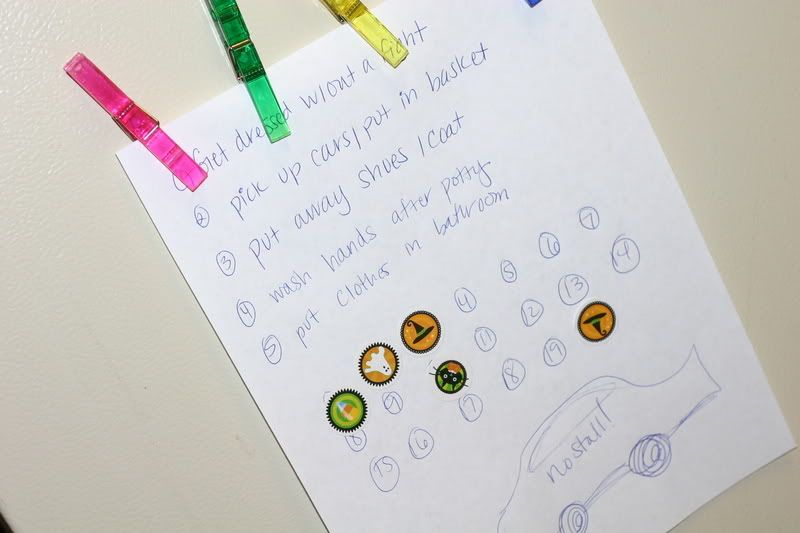 ① Get dressed w/out a fight
② pick up cars/put in basket
③ put away shoes/coat
④ wash hands after potty
⑤ put clothes in bathroom
④ ⑤ ⑥ ⑦
⑧ ⑨ ⑪ ⑫ ⑬ ⑭
⑮ ⑯ ⑰ ⑱ ⑲
no stall!